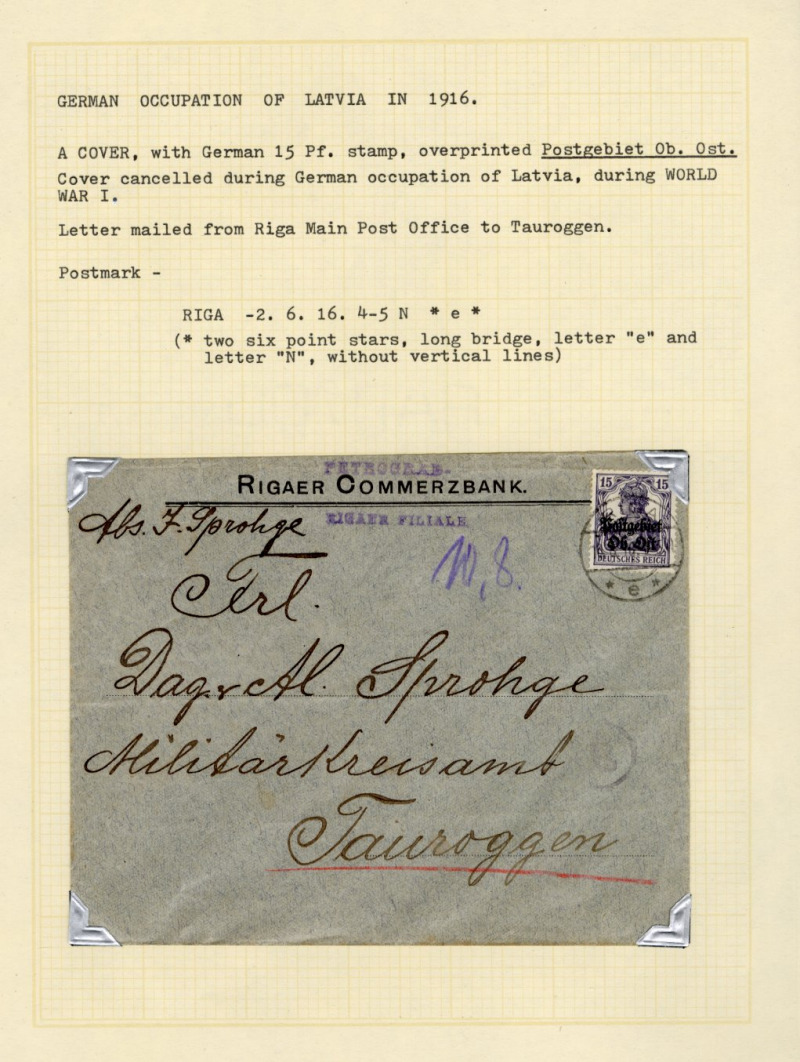 GERMAN OCCUPATION OF LATVIA IN 1916.
A COVER, with German 15 Pf. stamp, overprinted Postgebiet Ob. Ost.
Cover cancelled during German occupation of Latvia, during WORLD
WAR I.
Letter mailed from Riga Main Post Office to Tauroggen.
Postmark -
RIGA -2. 6. 16. 4-5 N * e *
(* two six point stars, long bridge, letter "e" and
letter "N", without vertical lines)
PETROGRAD-
RIGAER COMMERZBANK.
RIGAER FILIALE
Abs. F. Sprohge
15 15
Postgebiet
Ob. Ost
DEUTSCHES REICH
* e *
Frl.
Dag. v Al. Sprohge
Militärkreisamt
Tauroggen